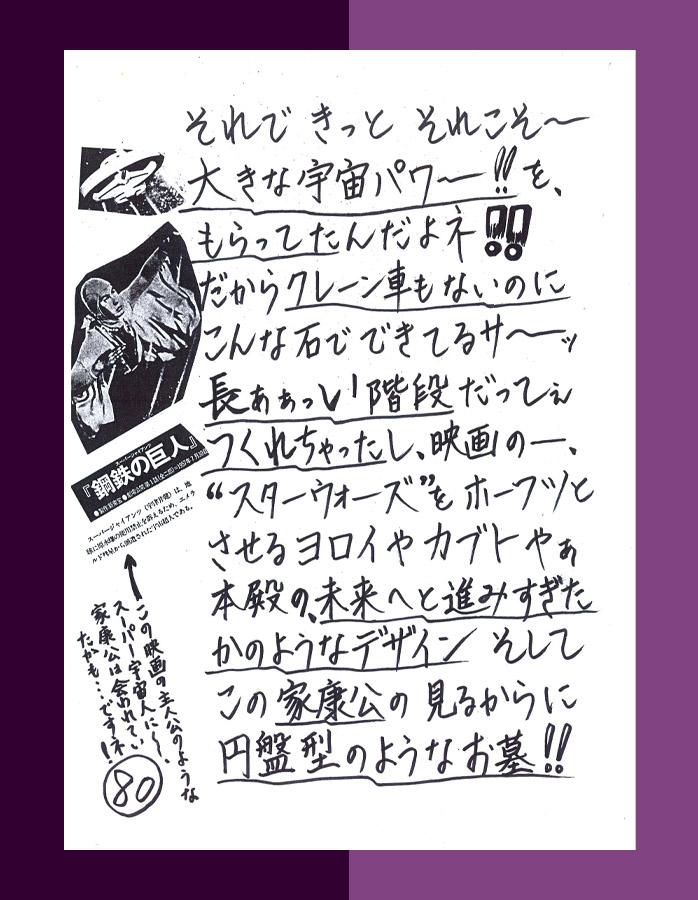 それで きっと それこそ〜
大きな宇宙パワー〜!!を、
もらってたんだよネ!!
だからクレーン車もないのに
こんな石でできてるサ〜ーッ
長ぁぁっい階段だってぇ
つくれちゃったし、映画の一、
“スターウォーズ”をホーフツと
させるヨロイやカブトやぁ
本殿の、未来へと進みすぎた
かのようなデザイン そして
この家康公の見るからに
円盤型のようなお墓!!
スーパージャイアンツ
『鋼鉄の巨人』
スーパージャイアンツ(宇津井健)は、地
球に原水爆の使用禁止を訴えるため、エメラ
ルド彗星から派遣された宇宙超人である。
この映画の主人公のような
スーパー宇宙人に〜、
家康公は会われてい
たかも…ですネ!
80